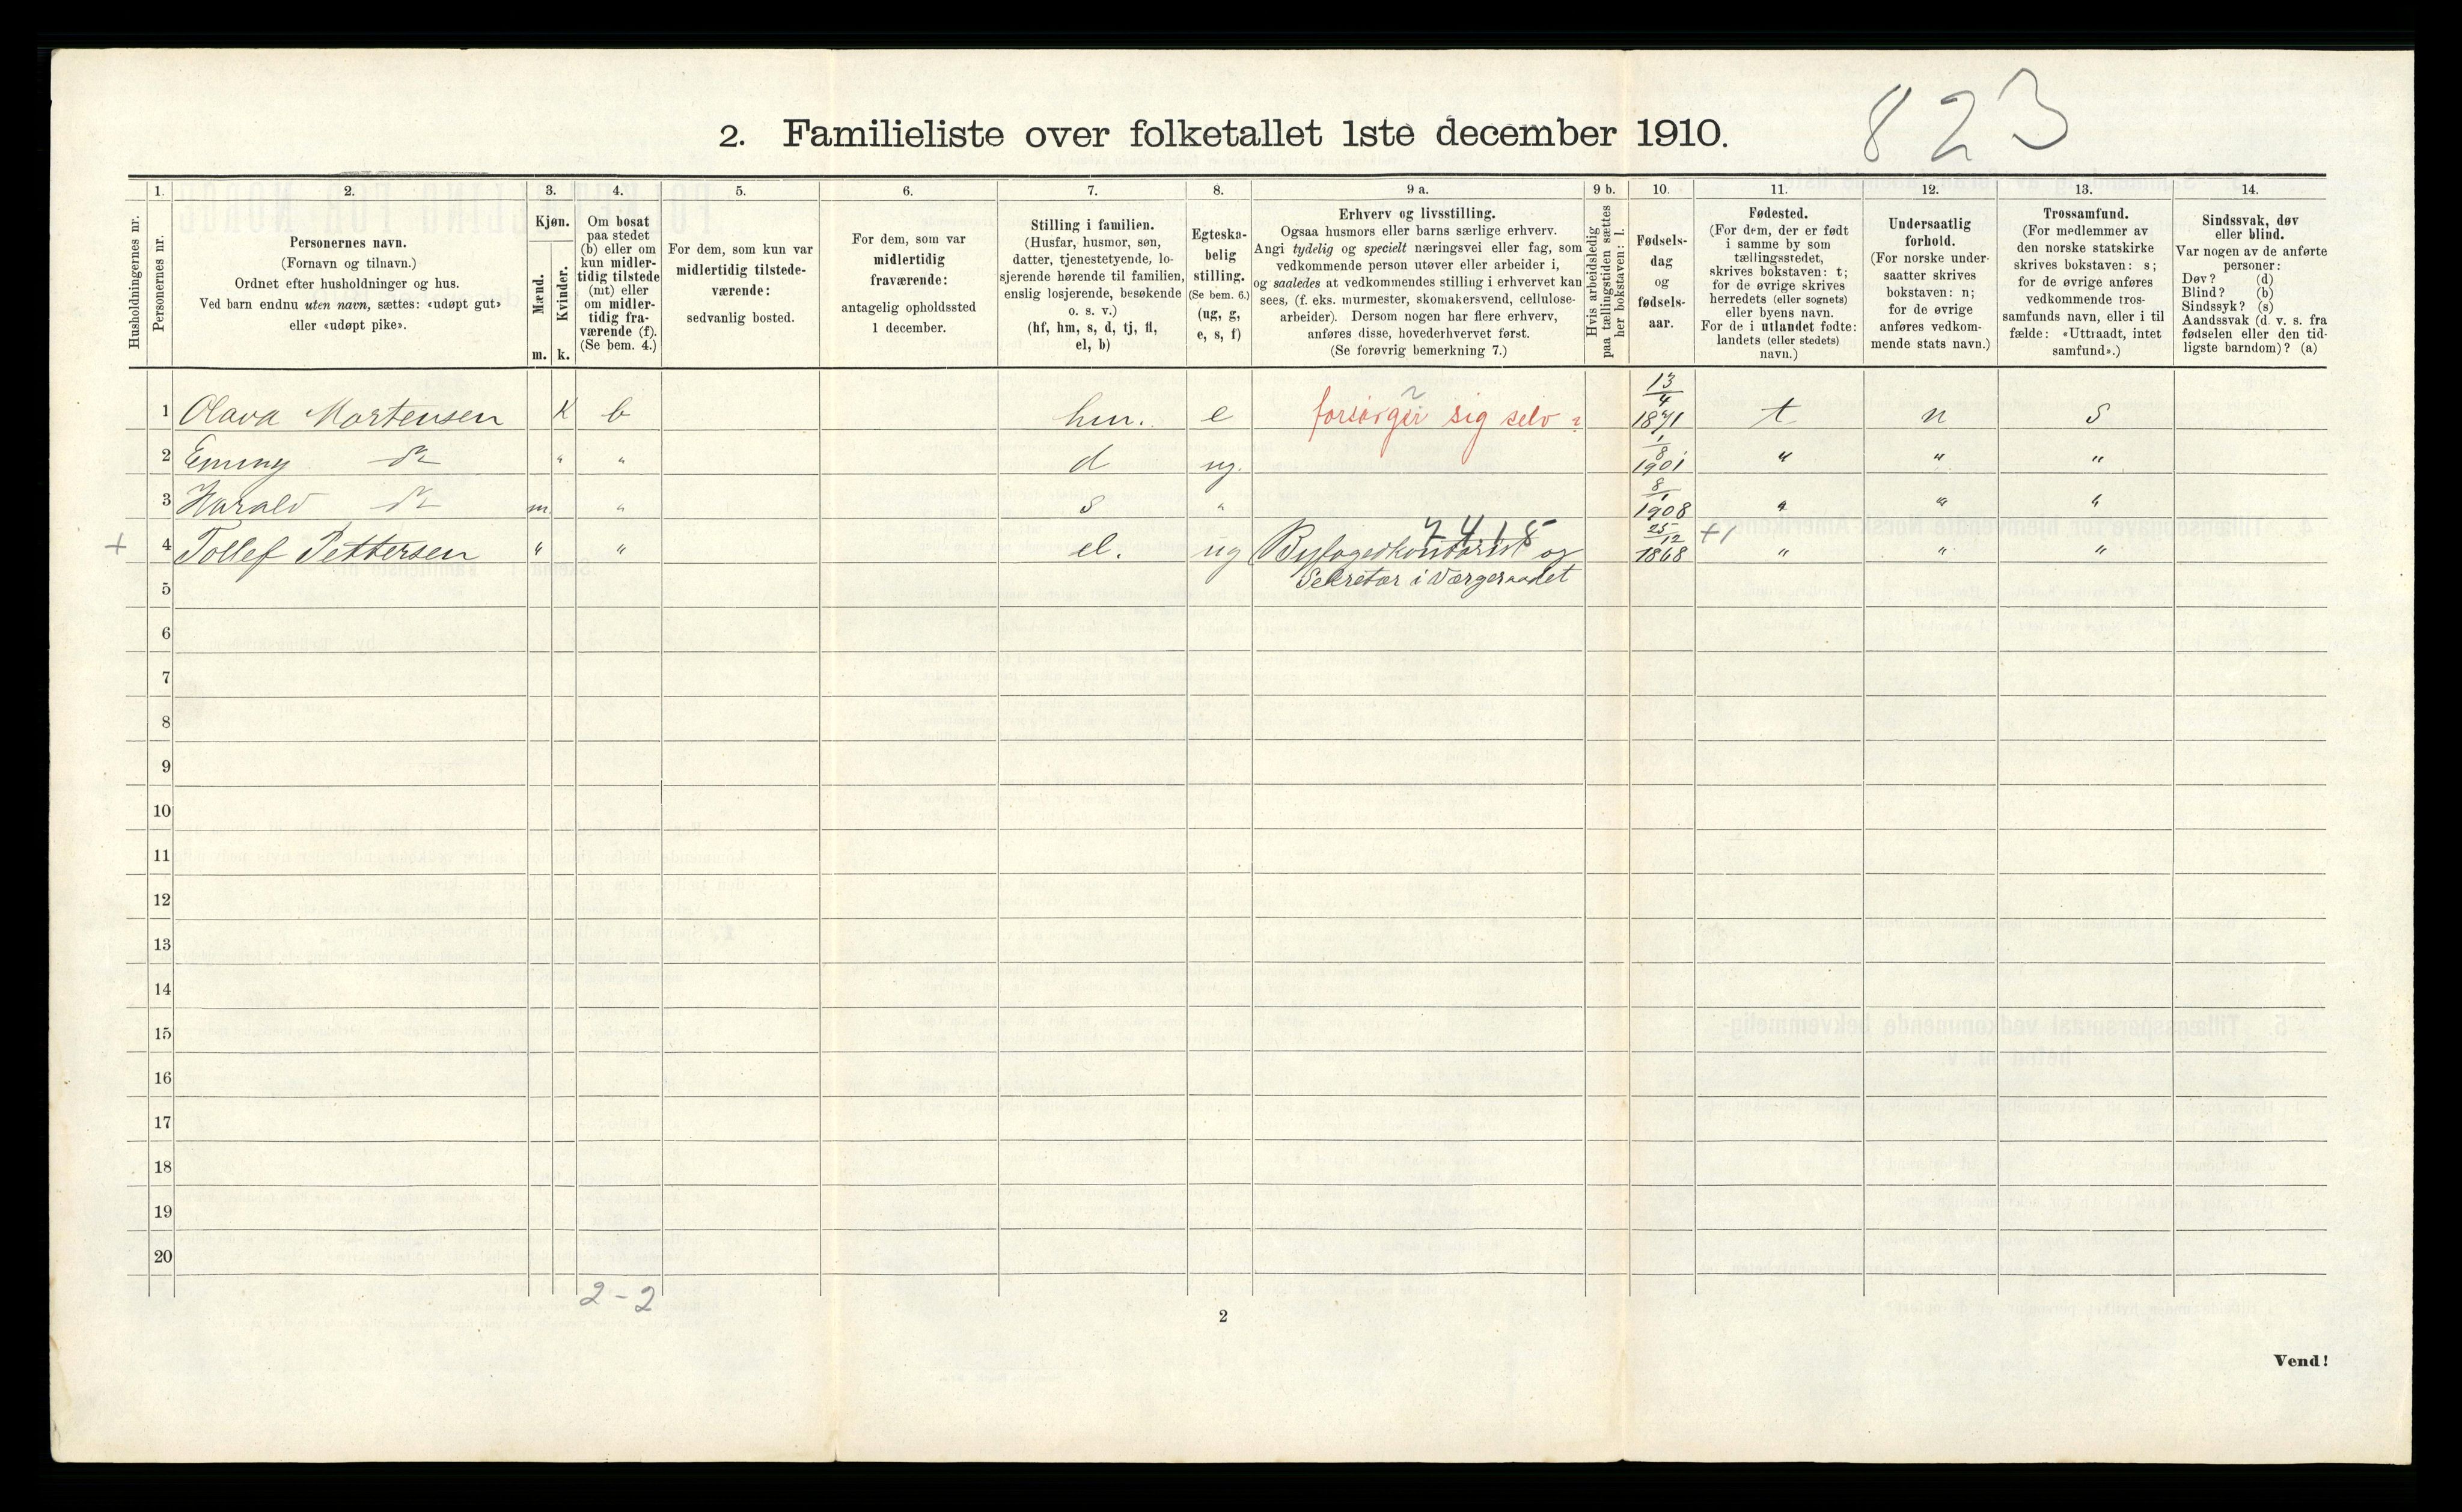 823
2. Familieliste over folketallet 1ste december 1910.
Husholdningernes nr.
1.
Personernes nr.
2.
Personernes navn.
(Fornavn og tilnavn.)
Ordnet efter husholdninger og hus.
Ved barn endnu uten navn, sættes: «udøpt gut»
eller «udøpt pike».
3.
Kjøn.
Mænd.
m.
Kvinder.
k.
4.
Om bosat
paa stedet
(b) eller om
kun midler-
tidig tilstede
(mt) eller
om midler-
tidig fra-
værende (f).
(Se bem. 4.)
5.
For dem, som kun var
midlertidig tilstede-
værende:
sedvanlig bosted.
6.
For dem, som var
midlertidig
fraværende:
antagelig opholdssted
1 december.
7.
Stilling i familien.
(Husfar, husmor, søn,
datter, tjenestetyende, lo-
sjerende hørende til familien,
enslig losjerende, besøkende
o. s. v.)
(hf, hm, s, d, tj, fl,
el, b)
8.
Egteska-
belig
stilling.
(Se bem. 6.)
(ug, g,
e, s, f)
9 a.
Erhverv og livsstilling.
Ogsaa husmors eller barns særlige erhverv.
Angi tydelig og specielt næringsvei eller fag, som
vedkommende person utøver eller arbeider i,
og saaledes at vedkommendes stilling i erhvervet kan
sees, (f. eks. murmester, skomakersvend, cellulose-
arbeider). Dersom nogen har flere erhverv,
anføres disse, hovederhvervet først.
(Se forøvrig bemerkning 7.)
9 b.
Hvis arbeidsledig
paa tællingstiden sættes
her bokstaven: l.
10.
Fødsels-
dag
og
fødsels-
aar.
11.
Fødested.
(For dem, der er født
i samme by som
tællingsstedet,
skrives bokstaven: t;
for de øvrige skrives
herredets (eller sognets)
eller byens navn.
For de i utlandet fødte:
landets (eller stedets)
navn.)
12.
Undersaatlig
forhold.
(For norske under-
saatter skrives
bokstaven: n;
for de øvrige
anføres vedkom-
mende stats navn.)
13.
Trossamfund.
(For medlemmer av
den norske statskirke
skrives bokstaven: s;
for de øvrige anføres
vedkommende tros-
samfunds navn, eller i til
fælde: «Uttraadt, intet
samfund».)
14.
Sindssvak, døv
eller blind.
Var nogen av de anførte
personer:
Døv? (d)
Blind? (b)
Sindssyk? (s)
Aandssvak (d. v. s. fra
fødselen eller den tid-
ligste barndom)? (a)
1 Olava Mortensen K b hm. e forsørger sig selv ? 13/4 1871 t n s
2 Emmy do " " d ug. 1/8 1901 " " "
3 Harald do m " s " 8/1 1908 " " "
7415
+ 4 Tollef Pettersen " " el. ug Byfogedkontorist og 25/12 1868 +1 " " "
5 Sekretær i Værgeraadet
6
7
8
9
10
11
12
13
14
15
16
17
18
19
20
2-2
2
Vend!